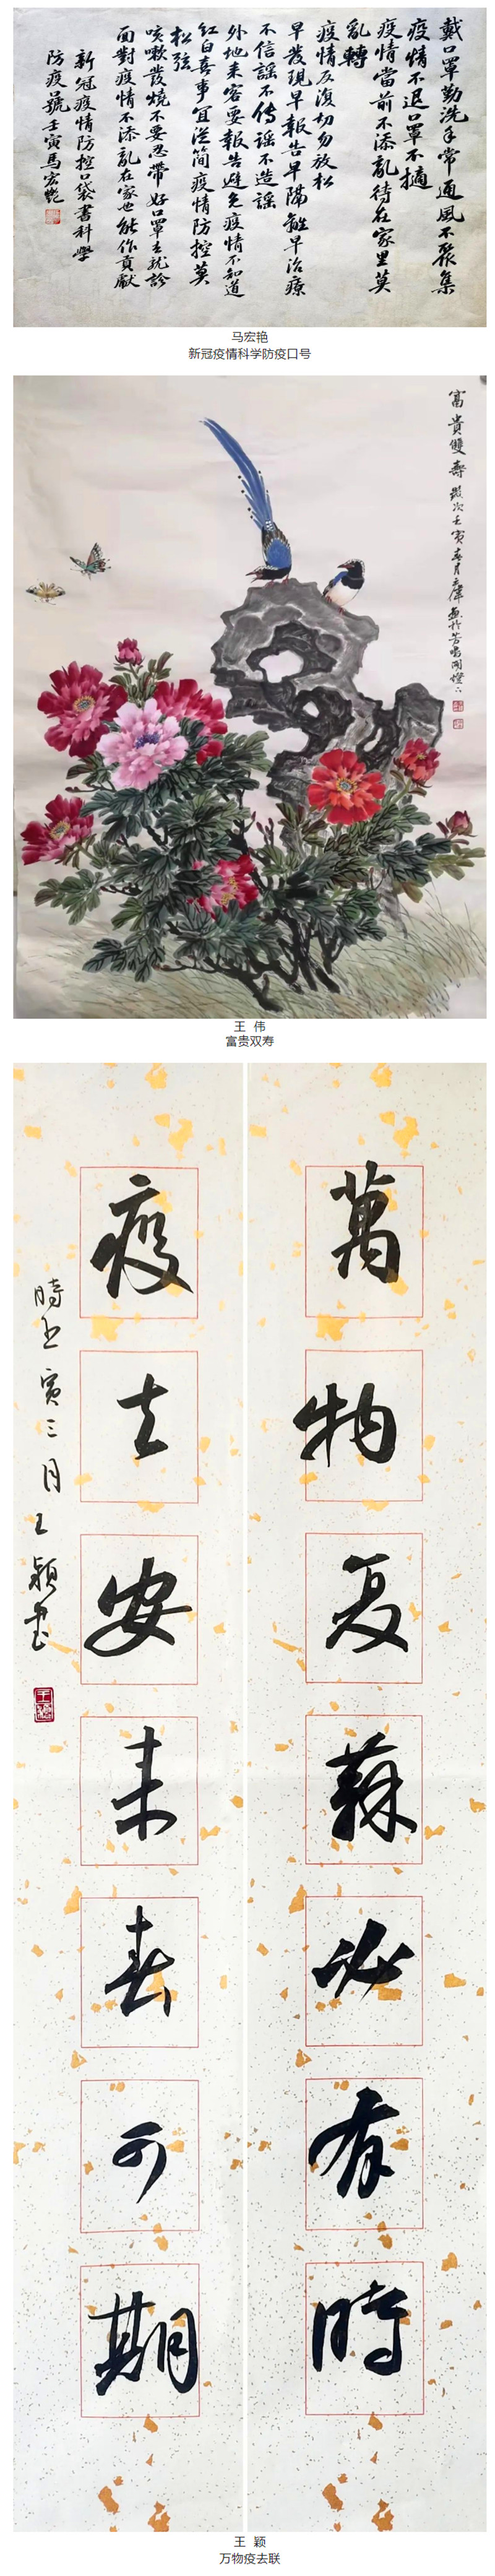 戴口罩勤洗手常通風不聚集
疫情不退口罩不摘
疫情當前不添亂待在家里莫
亂轉
疫情反復切勿放松
早發現早報告早隔離早治療
不信謠不傳謠不造謠
外地来客要報告避免疫情不知道
紅白喜事宜從簡疫情防控莫
松弦
咳嗽發燒不要忍帶好口罩去就診
面對疫情不添亂在家也能作貢獻
新冠疫情防控口袋書科學
防疫口號壬寅馬宏艷
马宏艳
新冠疫情科学防疫口号
富貴雙壽
歲次壬寅春月王偉画於
王 伟
富贵双寿
萬物复蘇必有時
疫去安来春可期
時壬寅三月王穎書
王 颖
万物疫去联